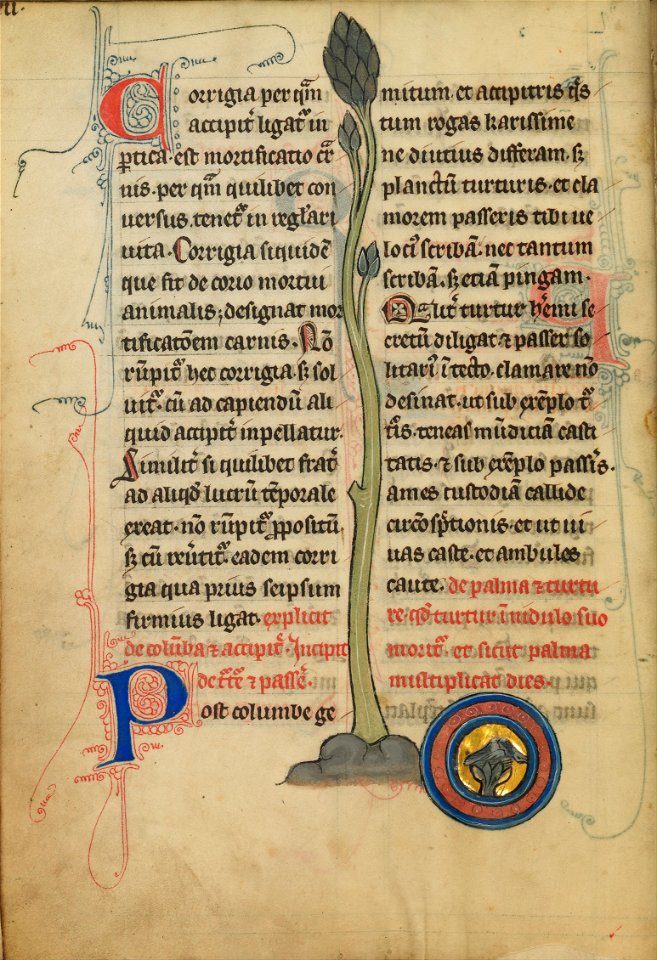 vii.
Corrigia per q̄m
accipit̄ ligat̄ in
ꝑtica. est mortificatio car̄
nis. per q̄m quilibet con
versus. tenet̄ in reglari
uita. Corrigia siquidē
que fit de corio mortui
animalis; designat mor
tificatōem carnis. Nō
rūpit̄ hec corrigia sꝫ sol
uit̄. cū ad capiendū ali
quid accipit̄ inpellatur.
Similit̄ si quilibet frat̄
ad aliqd̄ lucrū tēporale
exeat. nō rūpit̄ ꝓpositū.
sꝫ cū reūtit̄. eadem corri
gia qua prius seipsum
firmius ligat. explicit
de colūba ⁊ accipit̄. Incipit
de t̄t̄e ⁊ passe᷑.
Post columbe ge
mitum. et accipitris q̄s
tum rogas karissime
ne diutius differam. sꝫ
planctū turturis. et cla
morem passeris tibi ue
loci᷒ scribā. nec tantum
scribā. sꝫ etiā pingam.
Qu̅it̄ turtur h̄emi se
cretū diligat ⁊ passer so
litari᷒ ī tecto. clamare nō
desinat. ut sub exēplo t̄
t̄is. teneas mūdiciam casti
tatis. ⁊ sub exēplo passis̄.
ames custodiā callide
circōsp̄tionis. et ut ui
uas caste. et ambules
caute. de palma ⁊ turtu
re. qd̄ turtur ī nidulo suo
morit̄. et sicut palma
multiplicat dies.